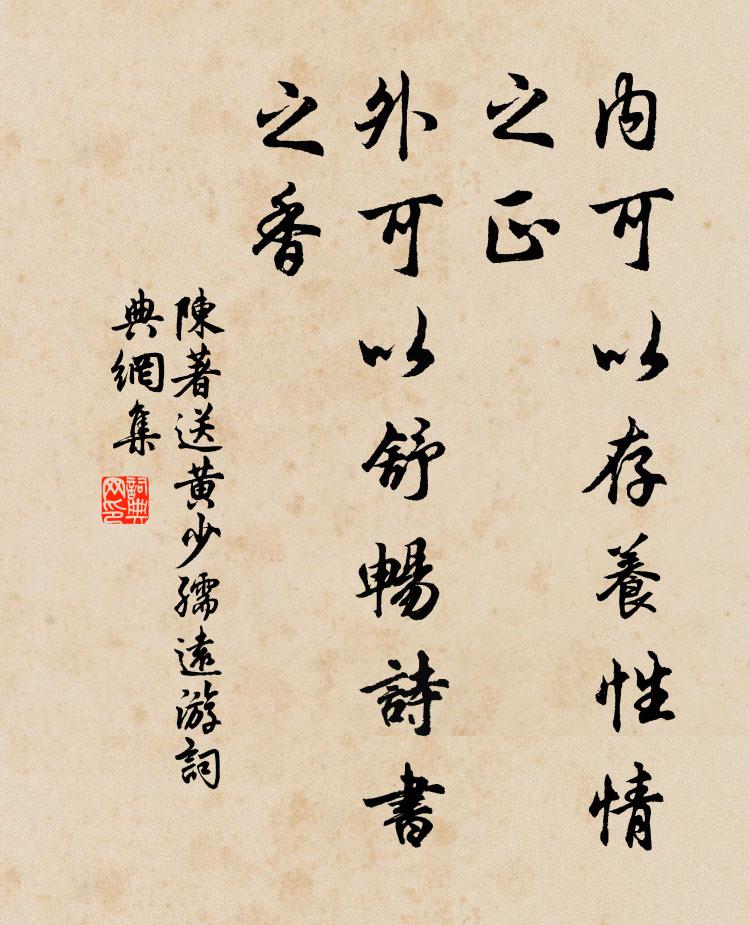 内可以存養性情
之正
外可以舒暢詩書
之香
陳著送黄少孺遠游詞
典網集
詞典
网印